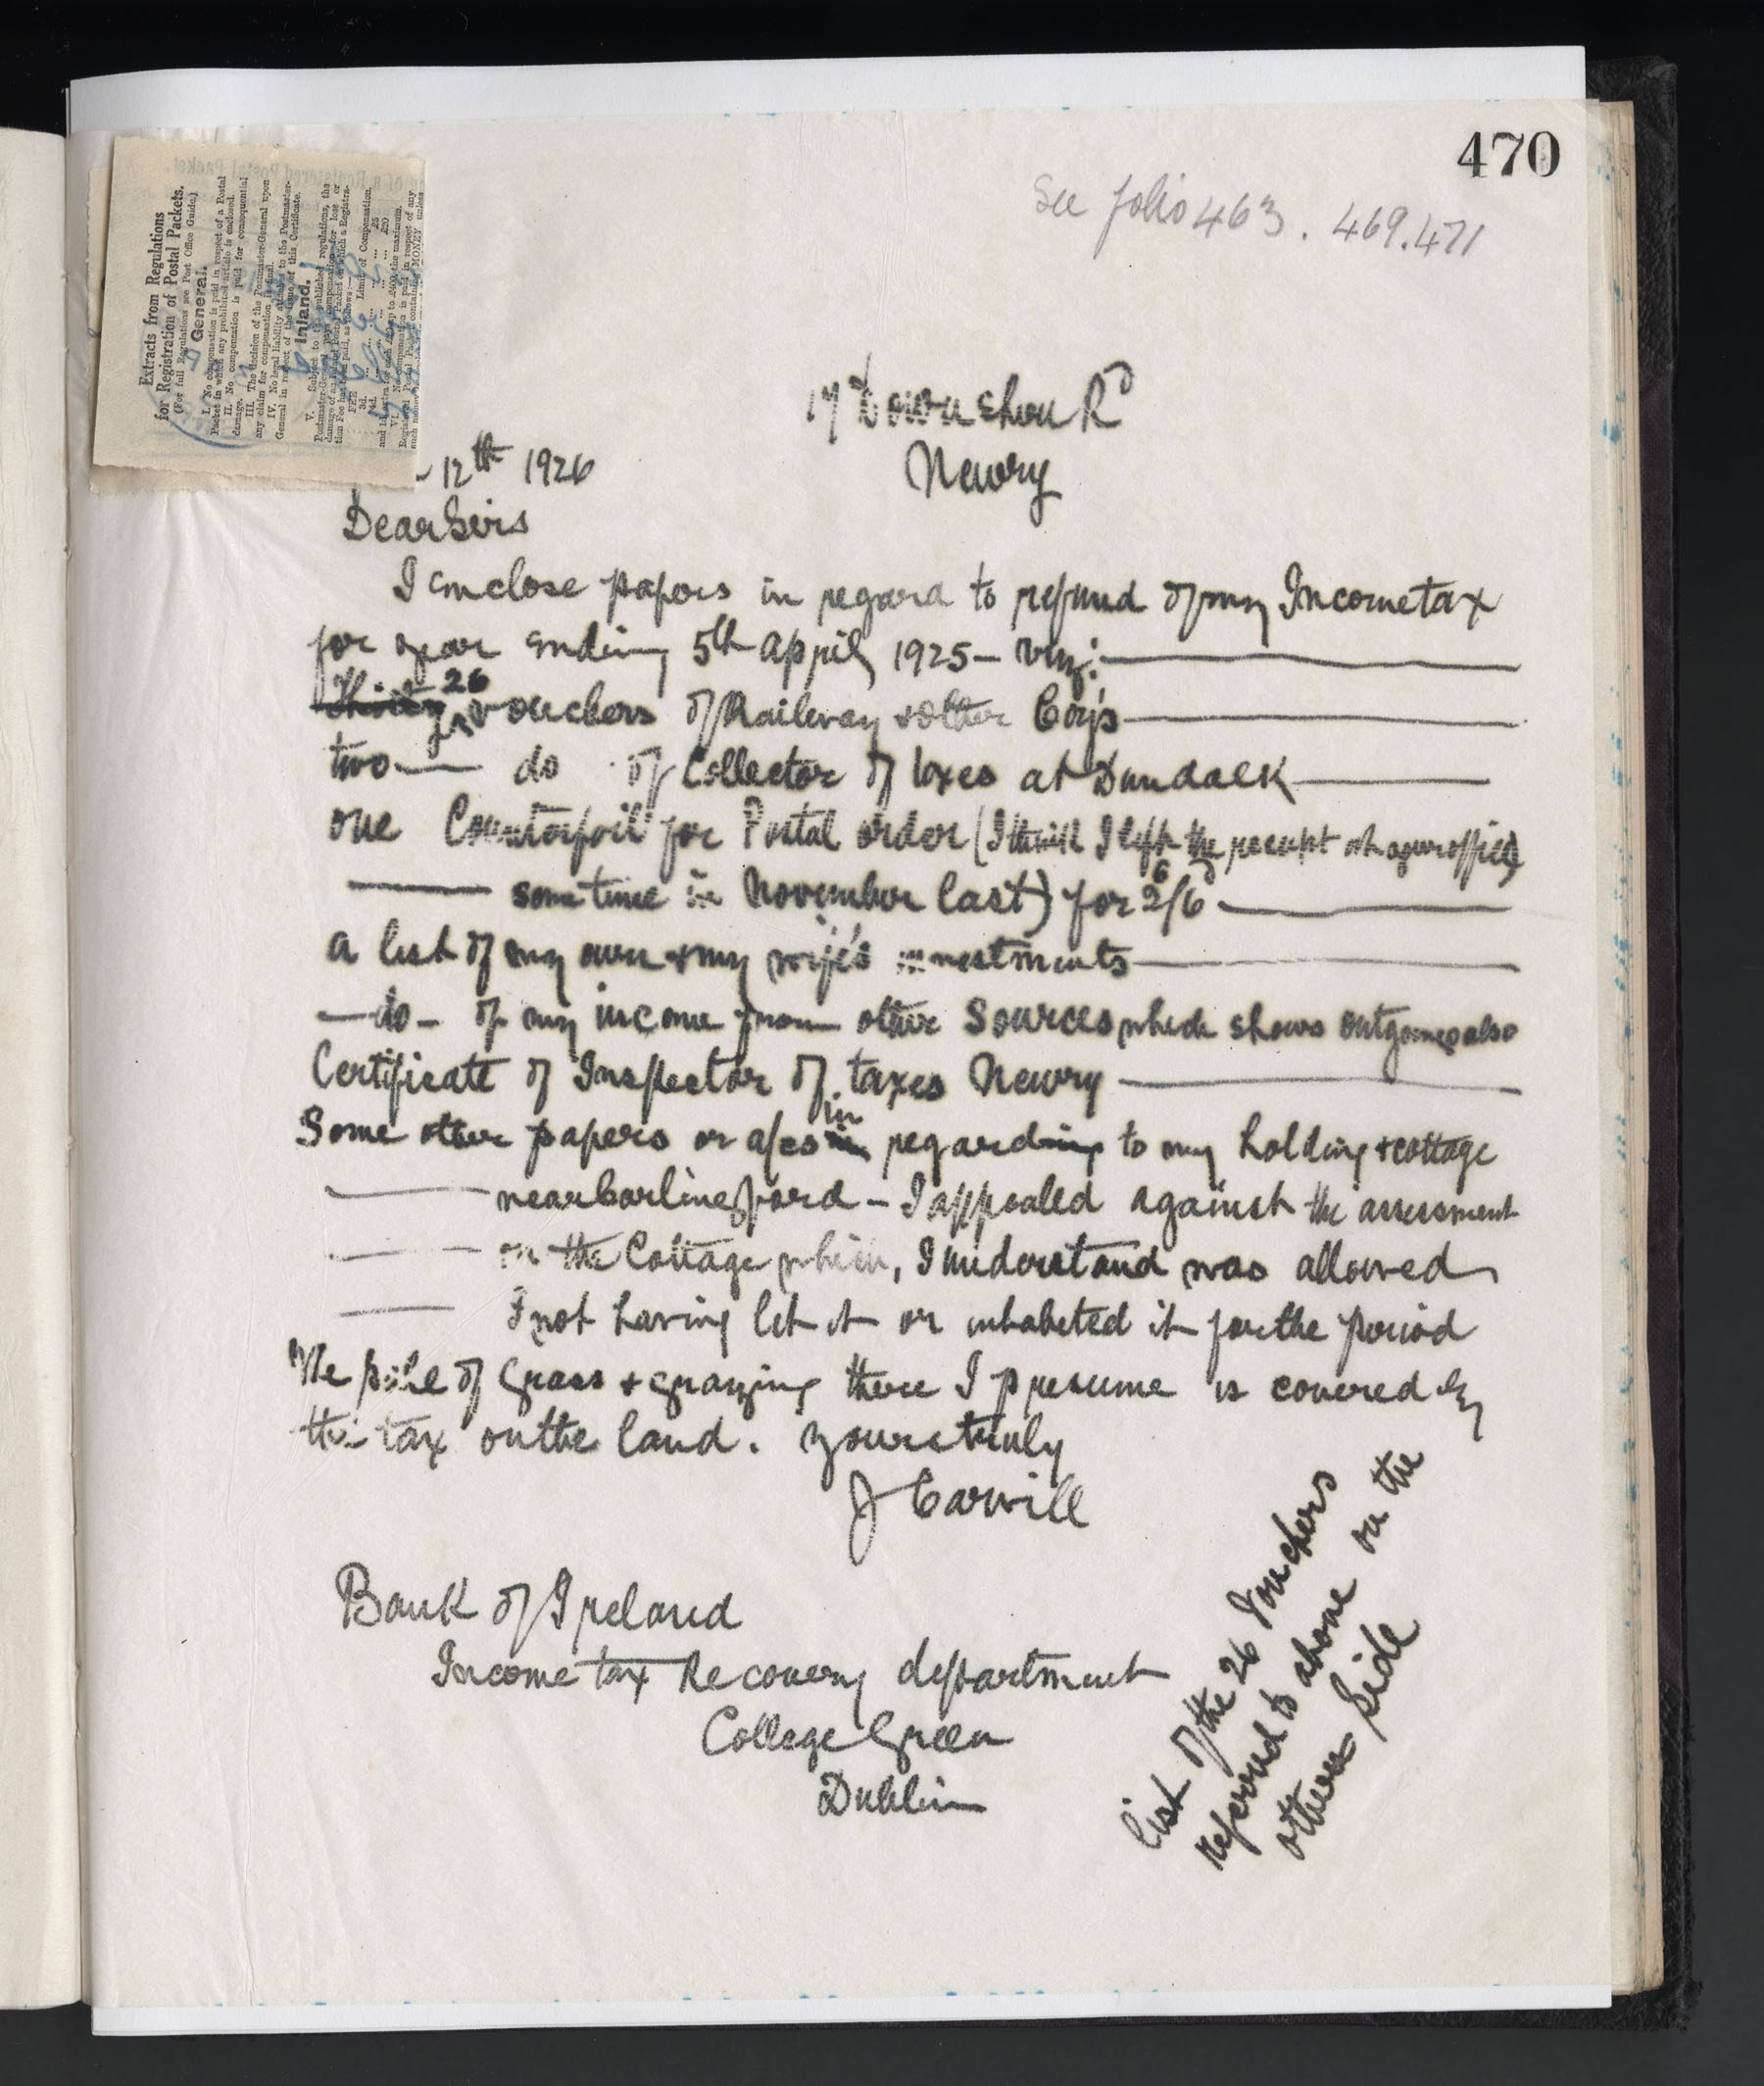 470
See folio 463. 469. 471
Extracts from Regulations
for Registration of Postal Packets.
(For full Regulations see Post Office Guide.)
General.
I. No compensation is paid in respect of a Postal
Packet in which any prohibited article is enclosed.
II. No compensation is paid for consequential
damage.
III. The decision of the Postmaster-General upon
any claim for compensation is final.
IV. No legal liability attaches to the Postmaster-
General in respect of the issue of this Certificate.
Inland.
V. Subject to the published regulations, the
Postmaster-General pays compensation for loss or
damage of an Inland Postal Packet on which a Registra-
tion Fee has been paid, as follows:—
FEE Limit of Compensation.
3d. ... ... ... £5
4d. ... ... ... £20
17 Downshire Rd
Newry
12th 1926
Dear Sirs
I enclose papers in regard to refund of my Income tax
for year ending 5th April 1925 – viz:
Thirty 26 vouchers of Railway & other Coys
two do of Collector of taxes at Dundalk
one Counterfoil for Postal order (I think I left the receipt at your office
sometime in November last) for 2/6
a list of my own & my wife's investments
– do – of my income from other sources which shows outgoings also
Certificate of Inspector of taxes Newry
Some other papers or a/cs in regarding to my holding & cottage
near Carlingford – I appealed against the assessment
on the Cottage which, I understand was allowed
I not having let it or inhabited it for the period
The sale of Grass & grazing there I presume is covered by
the tax on the land. Yours truly
J Carvill
Bank of Ireland
Income tax Recovery department
College Green
Dublin
List of the 26 Vouchers
referred to above on the
other side